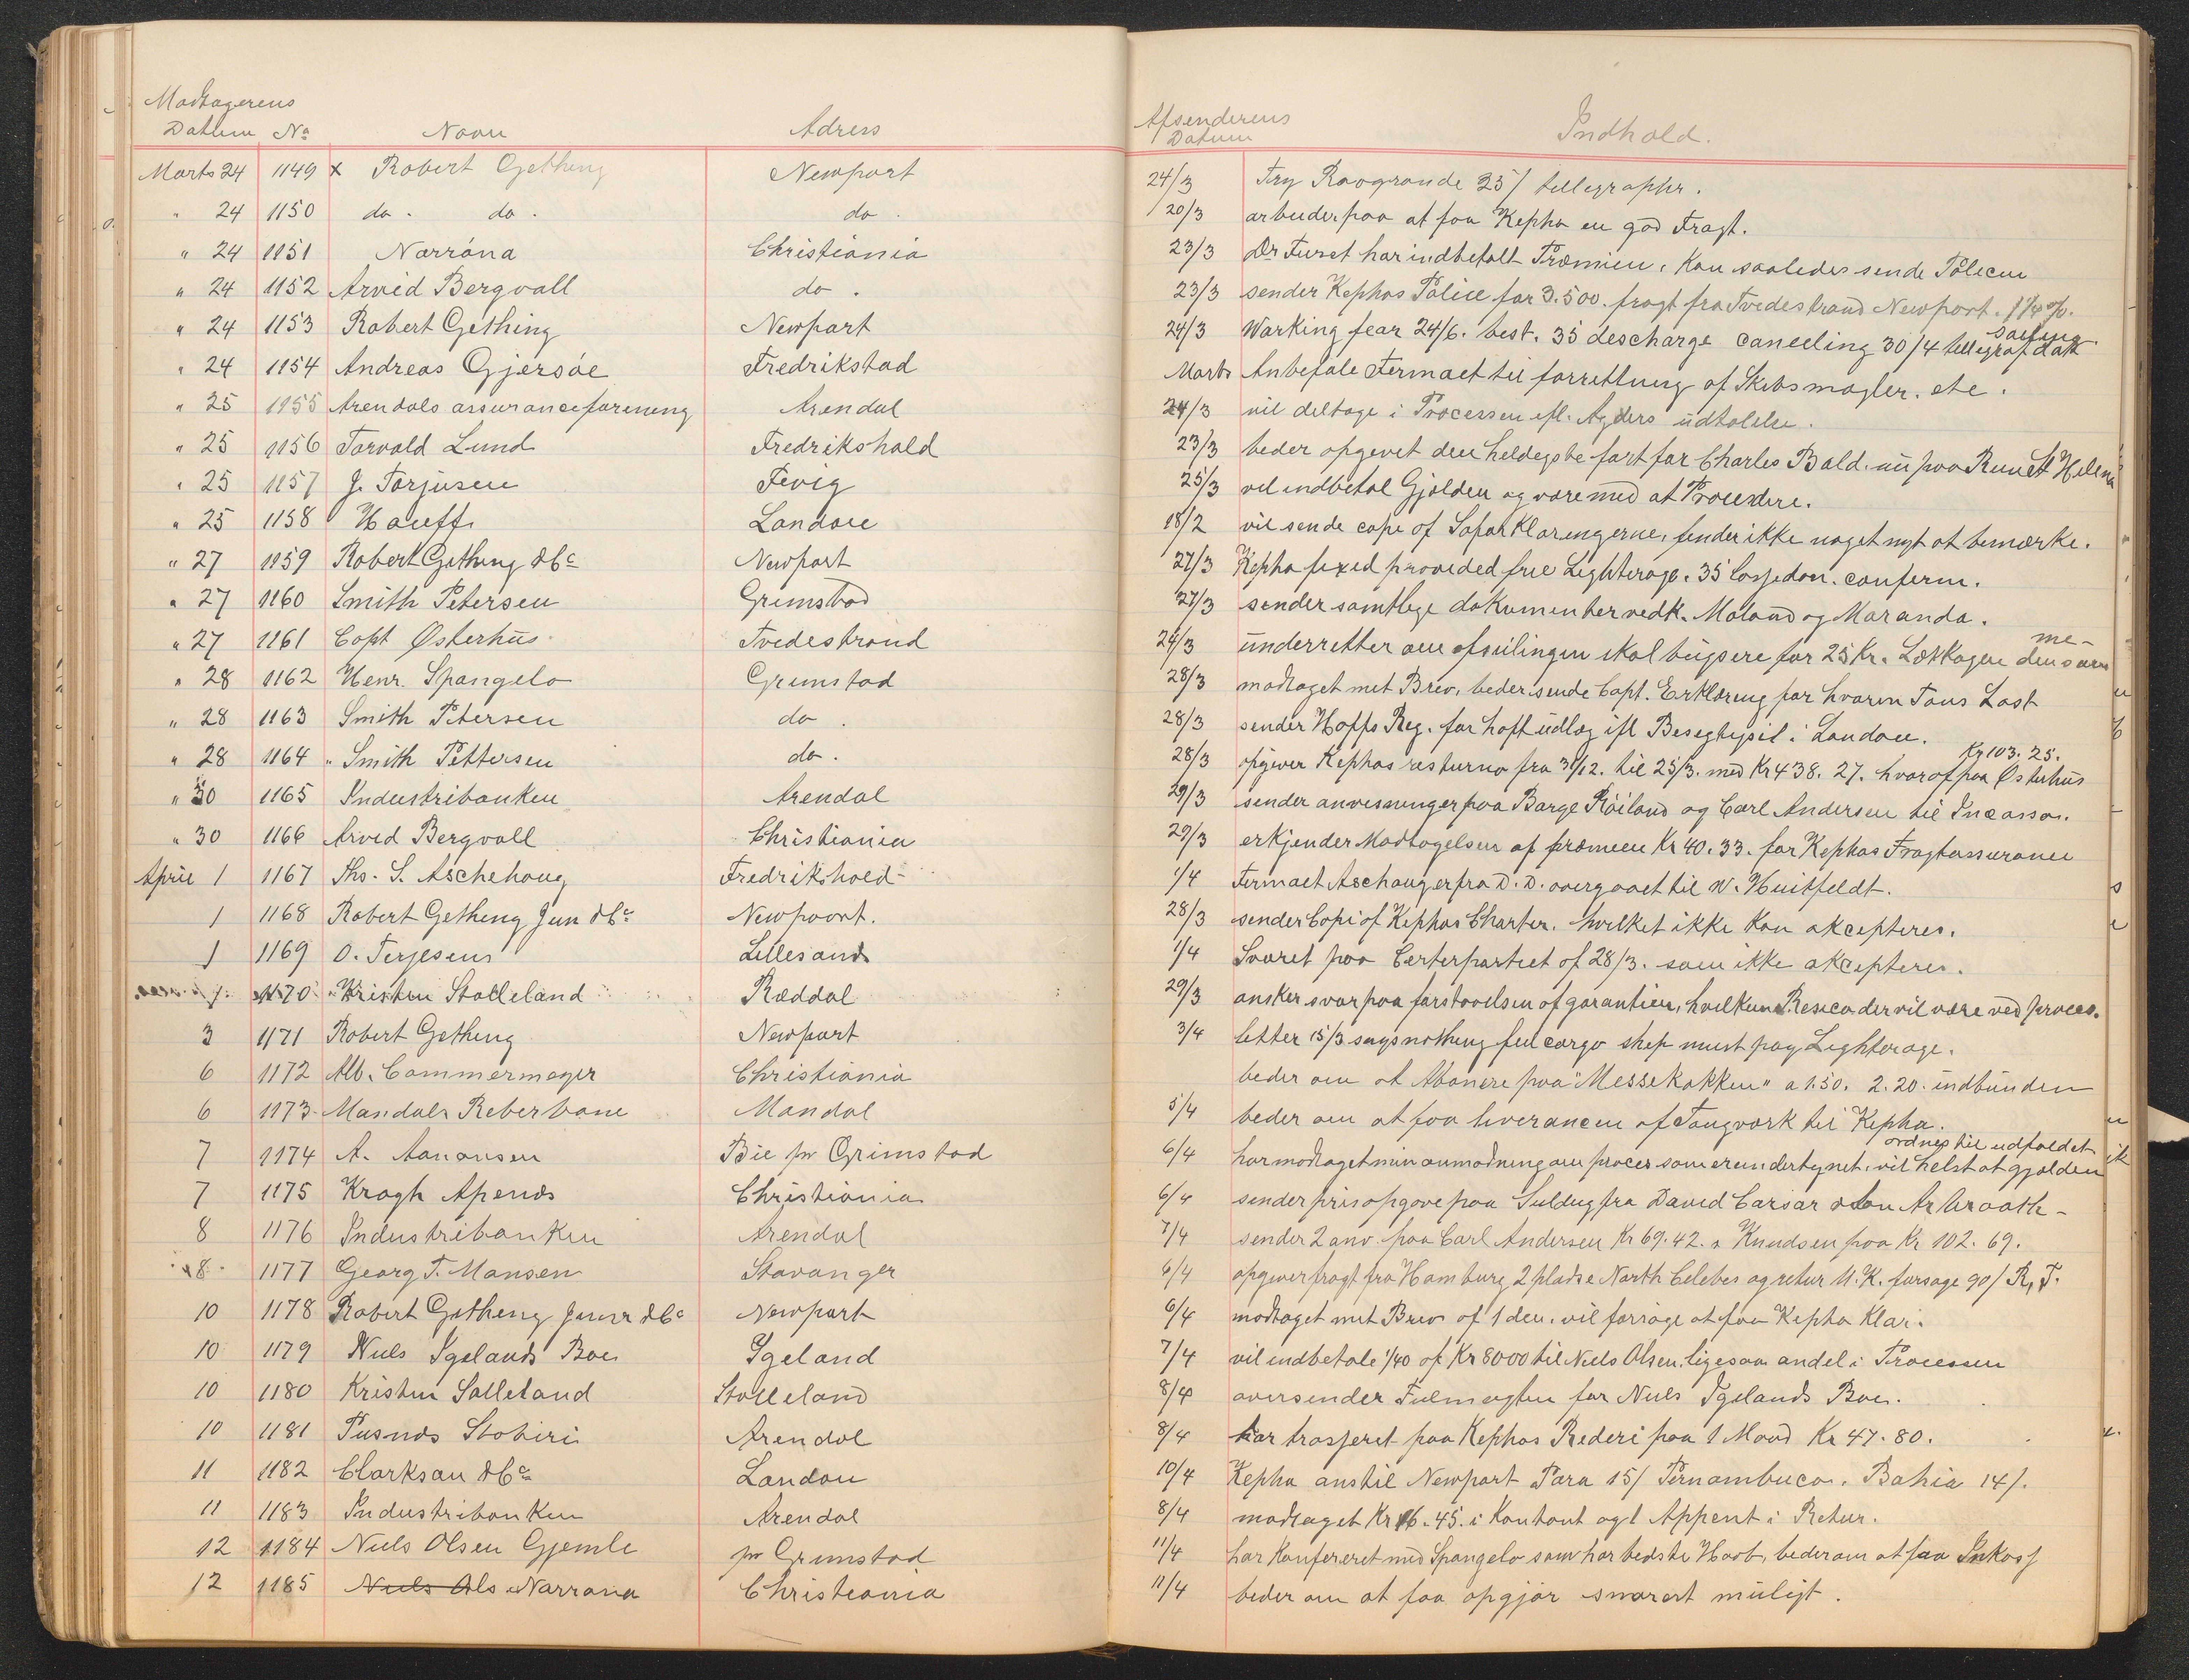 Modtagerens
Datum No Navn Adress
Marts 24 1149 x Robert Getheng Newport
" 24 1150 do. do. do.
" 24 1151 Narróna Christiania
" 24 1152 Arvid Bergvall do.
" 24 1153 Robert Gething Newport
" 24 1154 Andreas Gjersöe Fredrikstad
" 25 1155 Arendals assuranceforening Arendal
" 25 1156 Torvald Lund Fredrikshald
" 25 1157 J. Torjusen Fevig
" 25 1158 Hauff Landore
" 27 1159 Robert Gething & Co Newport
" 27 1160 Smith Petersen Grimstad
" 27 1161 Capt Østerhus Tvedestrand
" 28 1162 Henr. Spangelo Grimstad
" 28 1163 Smith Petersen do.
" 28 1164 " Smith Pettersen do.
" 30 1165 Industribanken Arendal
" 30 1166 Arvid Bergvall Christiania
April 1 1167 Ths. S. Aschehoug Fredrikshald
1 1168 Robert Getheng Jun & Co Newpoort.
1 1169 O. Terjesens Lillesand
1 1170 Kristen Stalleland Ræddal
3 1171 Robert Getheng Newport
6 1172 Alb. Cammermeyer Christiania
6 1173 Mandals Reberbane Mandal
7 1174 A. Aanonsen Bie pr Grimstad
7 1175 Krogh Apends Christiania
8 1176 Industribanken Arendal
8 1177 Georg T. Mansen Stavanger
10 1178 Robert Getheng Junr & Co Newport
10 1179 Niels Igelands Boe Igeland
10 1180 Kristen Salleland Stalleland
10 1181 Pusnds Stobiri Arendal
11 1182 Clarkson & Co London
11 1183 Industribanken Arendal
12 1184 Niels Olsen Gjemle pr Grimstad
12 1185 Niels Ols Narrona Christiania
Afsenderens
Datum Indhold.
24/3 Try Raogrande 25/ tellegrapher.
20/3 arbeider paa at faa Kepha en god Fragt.
23/3 Dr Furst har indbetalt Præmien, kan saaledes sende Polecen
23/3 sender Kephas Police for 3.500. fragt fra Tvedestrand Newport. 1 1/4 %.
24/3 Working fear 24/6. best. 35 descharge canceling 30/4 tellegraf dat
sailing
Marts Anbefale Fermaet til forrettning af Skibsmægler. etc.
24/3 vil deltage i Processen efl. Agders udtalelse.
23/3 beder opgivet den heldigste fart for Charles Bald. nu paa Reun St Helena
25/3 vil indbetal Gjælden og være med at Procedere.
18/2 vil sende copi af Sofar Klaringerne, finder ikke noget nyt at bemærke.
27/3 Kepha fixed provided free Lighterage. 35 confirm.
27/3 sender samtlige dokumenter vedk. Moland og Maranda.
24/3 underretter om afseilingen skal bugsere for 25 Kr. Lækkagen densam
me-
28/3 modtaget mit Brev, beder sende Capt. Erklæring for hvorm Tons Last
28/3 sender Hoffs Reg. for haft udlæg ifl i London.
28/3 opgiver Kephas fra 31/12. til 25/3. med Kr 438. 27. hvoraf paa Østerhus
Kr 103. 25.
29/3 sender anvesninger paa Barge Röiland og Carl Andersen til Incasso.
29/3 erkjender Modtagelsen af premien Kr 40. 33. for Kephas Fragtassurance
1/4 Firmaet Aschoug er fra D. D. overgaaet til W. Huitfeldt.
28/3 sender Copi af Kephas Charter. hvilket ikke kan akcepteres.
1/4 Svaret paa Certerpartiet af 28/3. som ikke akcepteres.
29/3 ønsker svar paa forstaaelsen af garantien, hvilken Resico der vil være ved proces.
3/4 letter 15/3 says nothing full cargo shep must pay Lighterage.
beder om at Abonere paa "Messekokken" a 1.50. 2.20. indbunden
5/4 beder om at faa liverancen af Taugværk til Kepha.
6/4 har modtaget min anmodning om proces som er undertegnet, vil helst at gjælden
ordnes til udfaldet
6/4 sender prisopgave paa Seildug fra David Carsar & Son Arbroath -
7/4 sender 2 anv. paa Carl Andersen Kr 69. 42. & Knudsen paa Kr 102. 69.
6/4 opgiver fragt fra Hamburg 2 pladse North Celebes og retur U. K. 90/ R, T.
6/4 modtaget mit Brev af 1 den. vil forsøge at faa Kepha Klar.
7/4 vil indbetale 1/40 af Kr 8000 til Niels Olsen, ligesaa andel i Processen
8/4 oversender Fulmagten for Niels Igelands Boe.
8/4 har trasseret paa Kephas Rederi paa 1 Maned Kr 47. 80.
10/4 Kepha anstil Newport Para 15/ Pernambuco. Bahia 14/.
8/4 modtaget Kr 16. 45. i Kontant og 1 Appent i Retur.
11/4 har Konfereret med Spangelo som har bedste Haab, beder om at faa Inkass
11/4 beder om at faa opgjør snarest muligt.